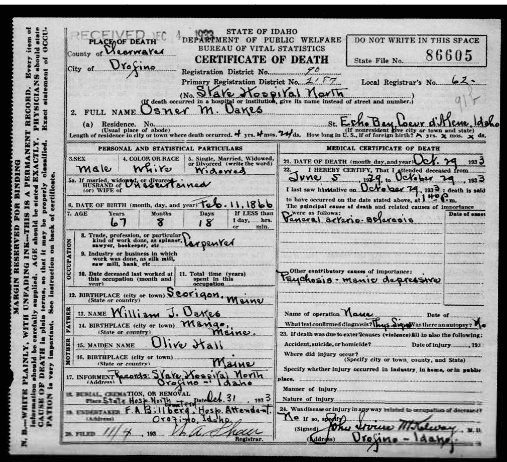 RECEIVED DEC 1933
STATE OF IDAHO
DEPARTMENT OF PUBLIC WELFARE
BUREAU OF VITAL STATISTICS
CERTIFICATE OF DEATH
DO NOT WRITE IN THIS SPACE
State File No. 86605
PLACE OF DEATH
County of Clearwater
City of Orofino
Registration District No. 90
Primary Registration District No. 2187
Local Registrar's No. 62-
(No. State Hospital North
(If death occurred in a hospital or institution, give its name instead of street and number.)
2. FULL NAME Osner M. Oakes
(a) Residence. No. St. Echo Bay, Coeur d'Alene, Idaho
(Usual place of abode) (If nonresident give city or town and state)
Length of residence in city or town where death occurred 4 yrs. 4 mos. 24 ds. How long in U. S., if of foreign birth? yrs. mos. ds.
PERSONAL AND STATISTICAL PARTICULARS
3. SEX Male
4. COLOR OR RACE White
5. Single, Married, Widowed, or Divorced (write the word) Widowed
5a. If married, widowed, or divorced HUSBAND of (or) WIFE of Unascertained
6. DATE OF BIRTH (month, day, and year) Feb. 11, 1866
7. AGE Years 67 Months 8 Days 18 If LESS than 1 day, hrs. or min.
OCCUPATION
8. Trade, profession, or particular kind of work done, as spinner, sawyer, bookkeeper, etc. Carpenter
9. Industry or business in which work was done, as silk mill, saw mill, bank, etc
10. Date deceased last worked at this occupation (month and year)
11. Total time (years) spent in this occupation
12. BIRTHPLACE (city or town) Maine
(State or country)
FATHER
13. NAME William J. Oakes
14. BIRTHPLACE (city or town) Maine.
(State or country)
MOTHER
15. MAIDEN NAME Olive Hall
16. BIRTHPLACE (city or town) Maine
(State or country)
17. INFORMANT Records: State Hospital North
(Address) Orofino - Idaho
18. BURIAL, CREMATION, OR REMOVAL
Place State Hosp. North Date Oct 31 1933
19. UNDERTAKER F. A. Billberg, Hosp. Attendant
(Address) Orofino, Idaho
20. FILED 11/4, 193
Registrar.
MEDICAL CERTIFICATE OF DEATH
21. DATE OF DEATH (month, day, and year) Oct. 29 1933
22. I HEREBY CERTIFY, That I attended deceased from
June 5 29 to October 29 1933
I last saw him alive on October 29, 1933, death is said
to have occurred on the date stated above, at
The principal cause of death and related causes of importance were as follows: Date of onset
General arterio-sclerosis
Other contributory causes of importance:
Psychosis - manic depressive
Name of operation None
What test confirmed diagnosis? Phys Signs Was there an autopsy? No
23. If death was due to external causes (violence) fill in also the following:
Accident, suicide, or homicide? Date of injury 193
Where did injury occur?
(Specify city or town, county, and State)
Specify whether injury occurred in industry, in home, or in public place.
Manner of injury
Nature of injury
24. Was disease or injury in any way related to occupation of deceased? No If so, specify
(Signed) John M. D.
(Address) Orofino - Idaho
MARGIN RESERVED FOR BINDING
N. B.—WRITE PLAINLY, WITH UNFADING INK—THIS IS A PERMANENT RECORD. Every item of information should be carefully supplied. AGE should be stated EXACTLY. PHYSICIANS should state CAUSE OF DEATH in plain terms so that it may be properly classified. Exact statement of OCCUPATION is very important. See instructions on back of certificate.